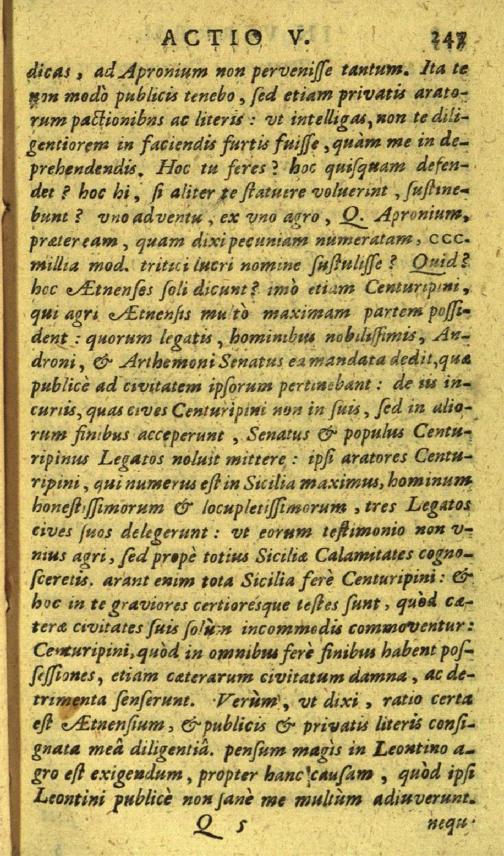 ACTIO V. 247
dicas, ad Apronium non pervenisse tantum. Ita te
non modò publicis tenebo, sed etiam privatis arato-
rum pactionibus ac literis: vt intelligas, non te dili-
gentiorem in faciendis furtis fuisse, quàm me in de-
prehendendis. Hoc tu feres? hoc quisquam defen-
det? hoc hi, si aliter te statuere voluerint, sustine-
bunt? vno adventu, ex vno agro, Q. Apronium,
præter eam, quam dixi pecuniam numeratam, ccc.
millia mod. tritici lucri nomine sustulisse? Quid?
hoc Ætnenses soli dicunt? imò etiam Centuripini,
qui agri Ætnensis multò maximam partem possi-
dent: quorum legatis, hominibus nobilissimis, An-
droni, & Arthemoni Senatus ea mandata dedit, quæ
publicè ad civitatem ipsorum pertinebant: de iis in-
curiis, quas cives Centuripini non in suis, sed in alio-
rum finibus acceperunt, Senatus & populus Centu-
ripinus Legatos noluit mittere: ipsi aratores Centu-
ripini, qui numerus est in Sicilia maximus, hominum
honestissimorum & locupletissimorum, tres Legatos
cives suos delegerunt: vt eorum testimonio non v-
nius agri, sed propè totius Siciliæ Calamitates cogno-
sceretis. arant enim tota Sicilia ferè Centuripini: &
hoc in te graviores certioresque testes sunt, quòd cæ-
teræ civitates suis solùm incommodis commoventur:
Centuripini, quòd in omnibus ferè finibus habent pos-
sessiones, etiam cæterarum civitatum damna, ac de-
trimenta senserunt. Verùm, vt dixi, ratio certa
est Ætnensium, & publicis & privatis literis consi-
gnata meâ diligentiâ. pensum magis in Leontino a-
gro est exigendum, propter hanc causam, quòd ipsi
Leontini publicè non sanè me multùm adiuverunt.
Q 5 nequ.